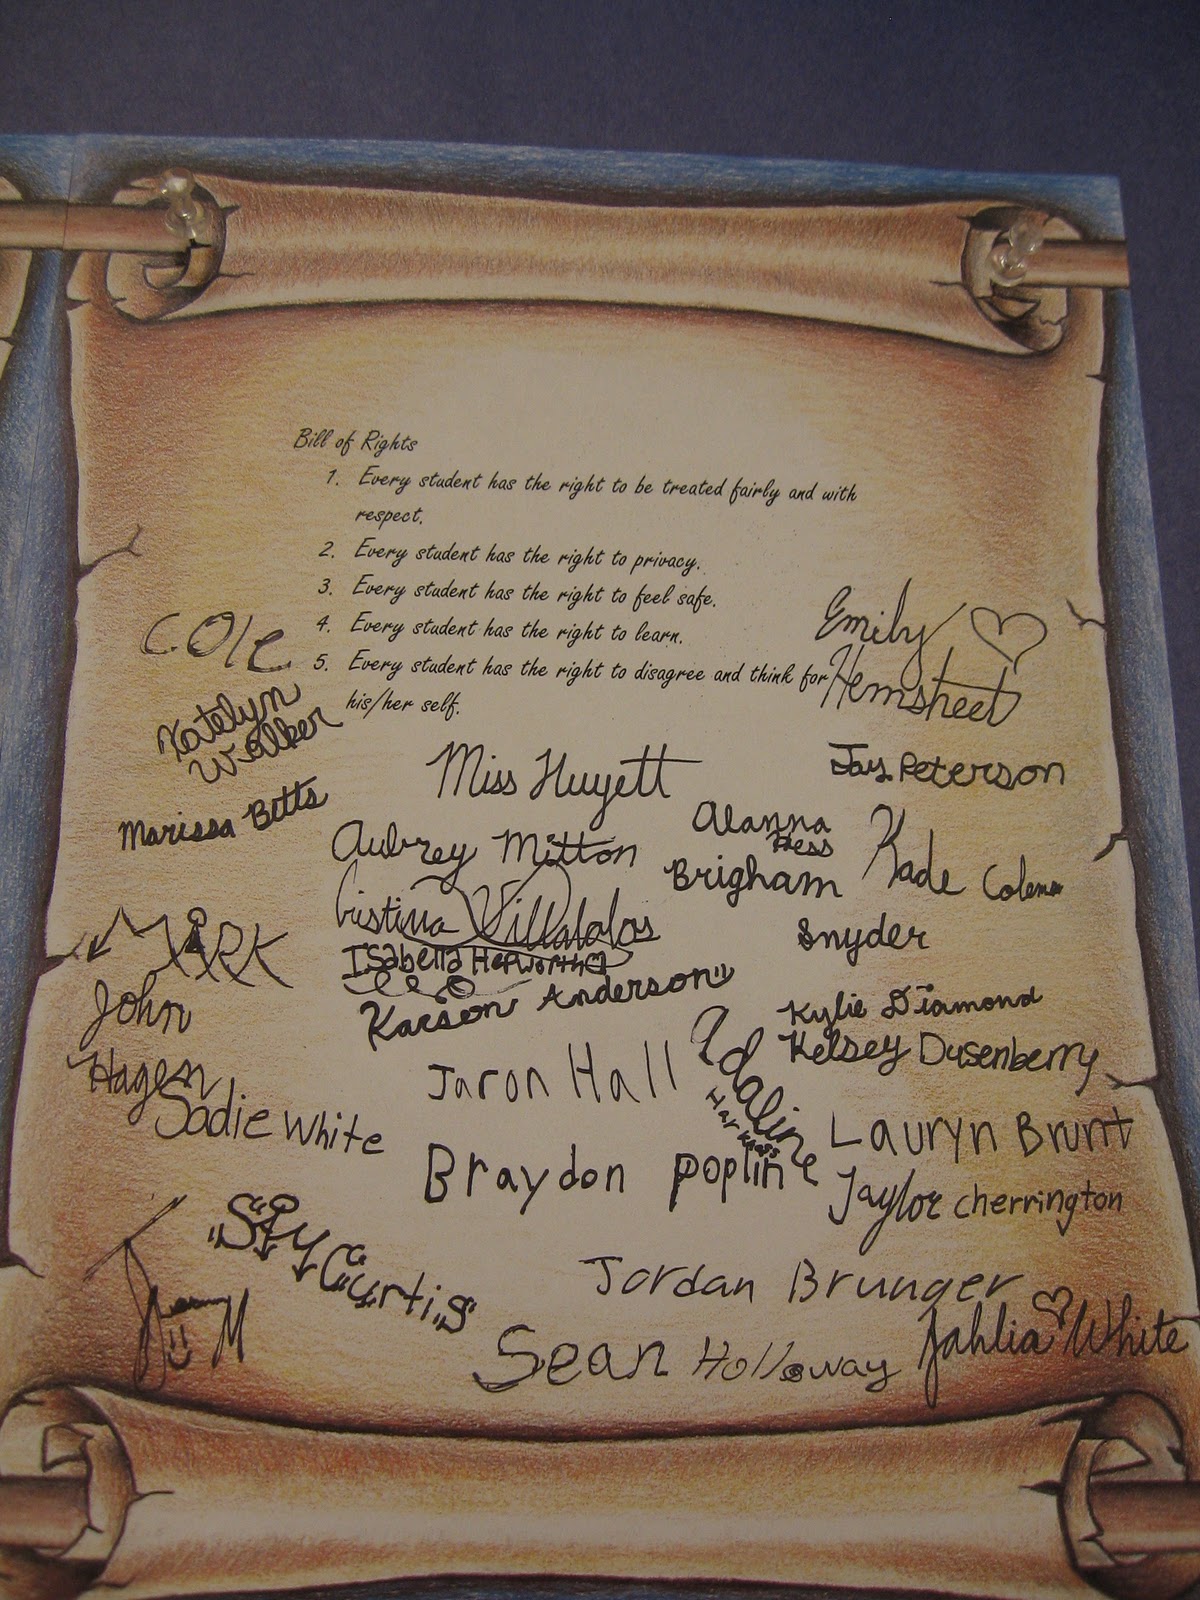 Bill of Rights
1. Every student has the right to be treated fairly and with
respect.
2. Every student has the right to privacy.
3. Every student has the right to feel safe.
4. Every student has the right to learn.
5. Every student has the right to disagree and think for
his/her self.
Cole
Emily
Hemsheet
Katelyn
Walker
Miss Huyett
Jay Peterson
Marissa Betts
Aubrey Mitton
Alanna
Hess
Brigham
Kade Coleman
Cristina Villalobos
Snyder
MARK
Isabella Hepworth
Karson Anderson
John
Hagen
Kylie Diamond
Kelsey Dusenberry
Jaron Hall
Adaline
Harkness
Sadie White
Lauryn Brunt
Braydon Poplin
Jaylor Cherrington
Sky Curtis
Jordan Brunger
Jahlia White
Sean Holloway